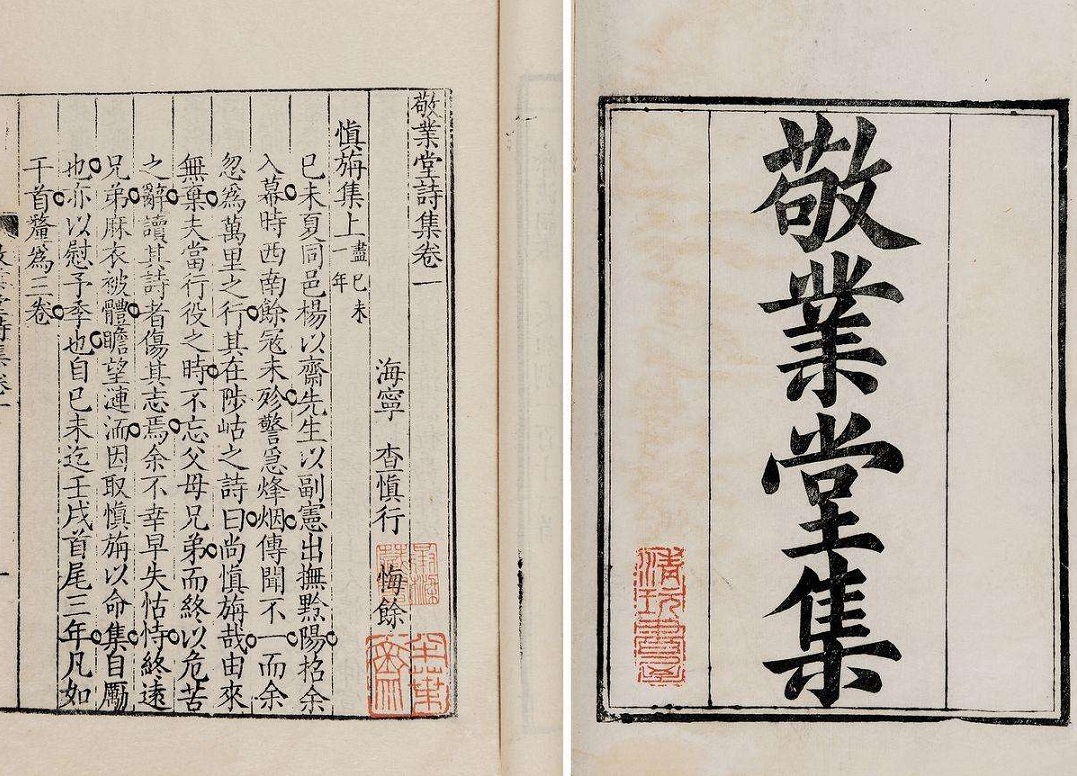 敬業堂集
敬業堂詩集卷一
海寧 查慎行 悔餘
慎旃集上 盡巳未一年
巳未夏同邑楊以齋先生以副憲出撫黔陽招余
入幕時西南餘冦未殄警急烽烟傳聞不一而余
忽爲萬里之行其在陟岵之詩曰尚慎旃哉由來
無棄夫當行役之時不忘父母兄弟而終以危苦
之辭讀其詩者傷其志焉余不幸早失怙恃終遠
兄弟麻衣被體瞻望漣洏因取慎旃以命集自勵
也亦以慰予季也自巳未迄壬戌首尾三年凡如
干首釐爲三卷